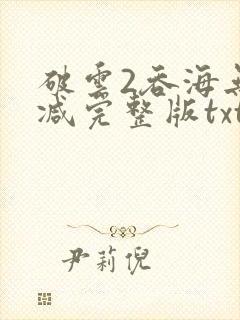 破雲2吞海無
减完整版txt
尹莉倪